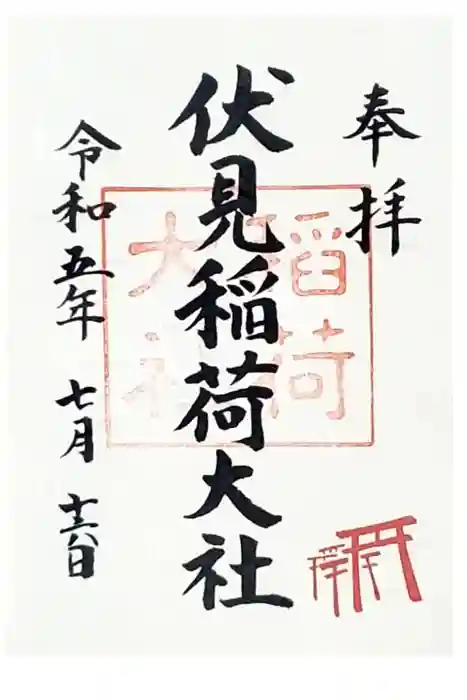 奉拝
伏見稲荷大社
稲荷
大社
令和五年 七月 十六日